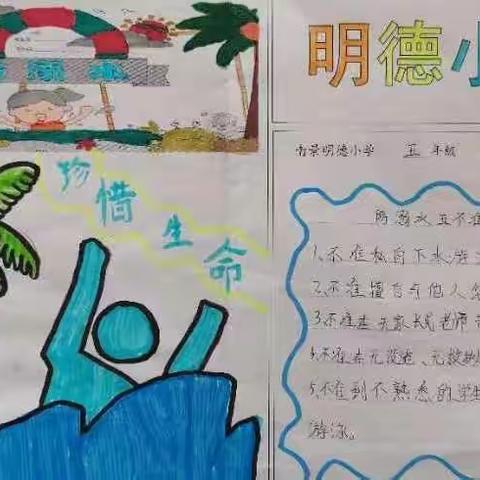 防溺水
明德小
珍惜生命
南景明德小学 五 年级
防溺水五不准
1、不准私自下水游
2、不准擅自与他人
3、不准在无家长老师
4、不准在无设施、无救
5、不准到不熟悉的
游泳。